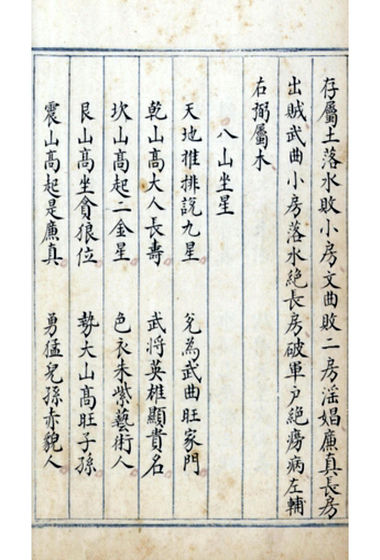 存屬土落水敗小房文曲敗二房滛娼廉真長房
出賊武曲小房落水絶長房破軍户絶癆病左輔
右弼屬木
八山坐星
天地推排說九星 兊為武曲旺家門
乾山髙大人長壽 武将英雄顯貴名
坎山髙起二金星 色衣朱紫藝術人
艮山髙坐貪狼位 勢大山髙旺子孫
震山髙起是廉真 勇猛兒孫赤貌人